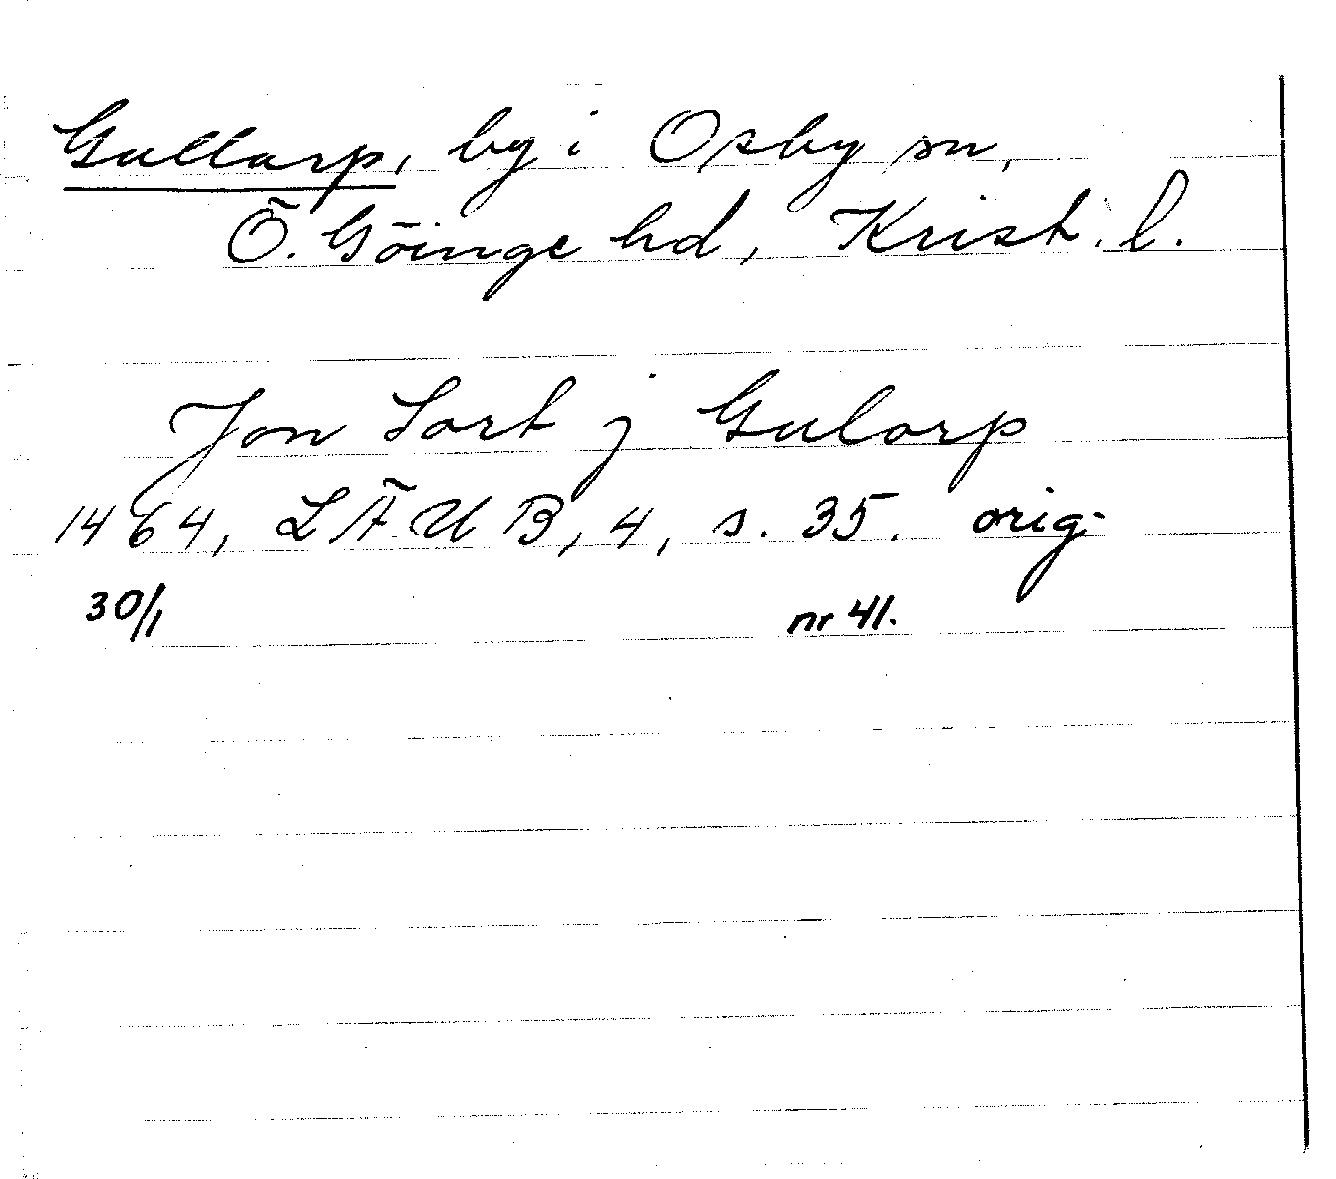 Gullarp, by i Osby sn,
Ö. Göinge hd, Krist. l.
Jon Sort j Gulorp
1464, LÄUB, 4, s. 35. orig.
30/1 nr 41.